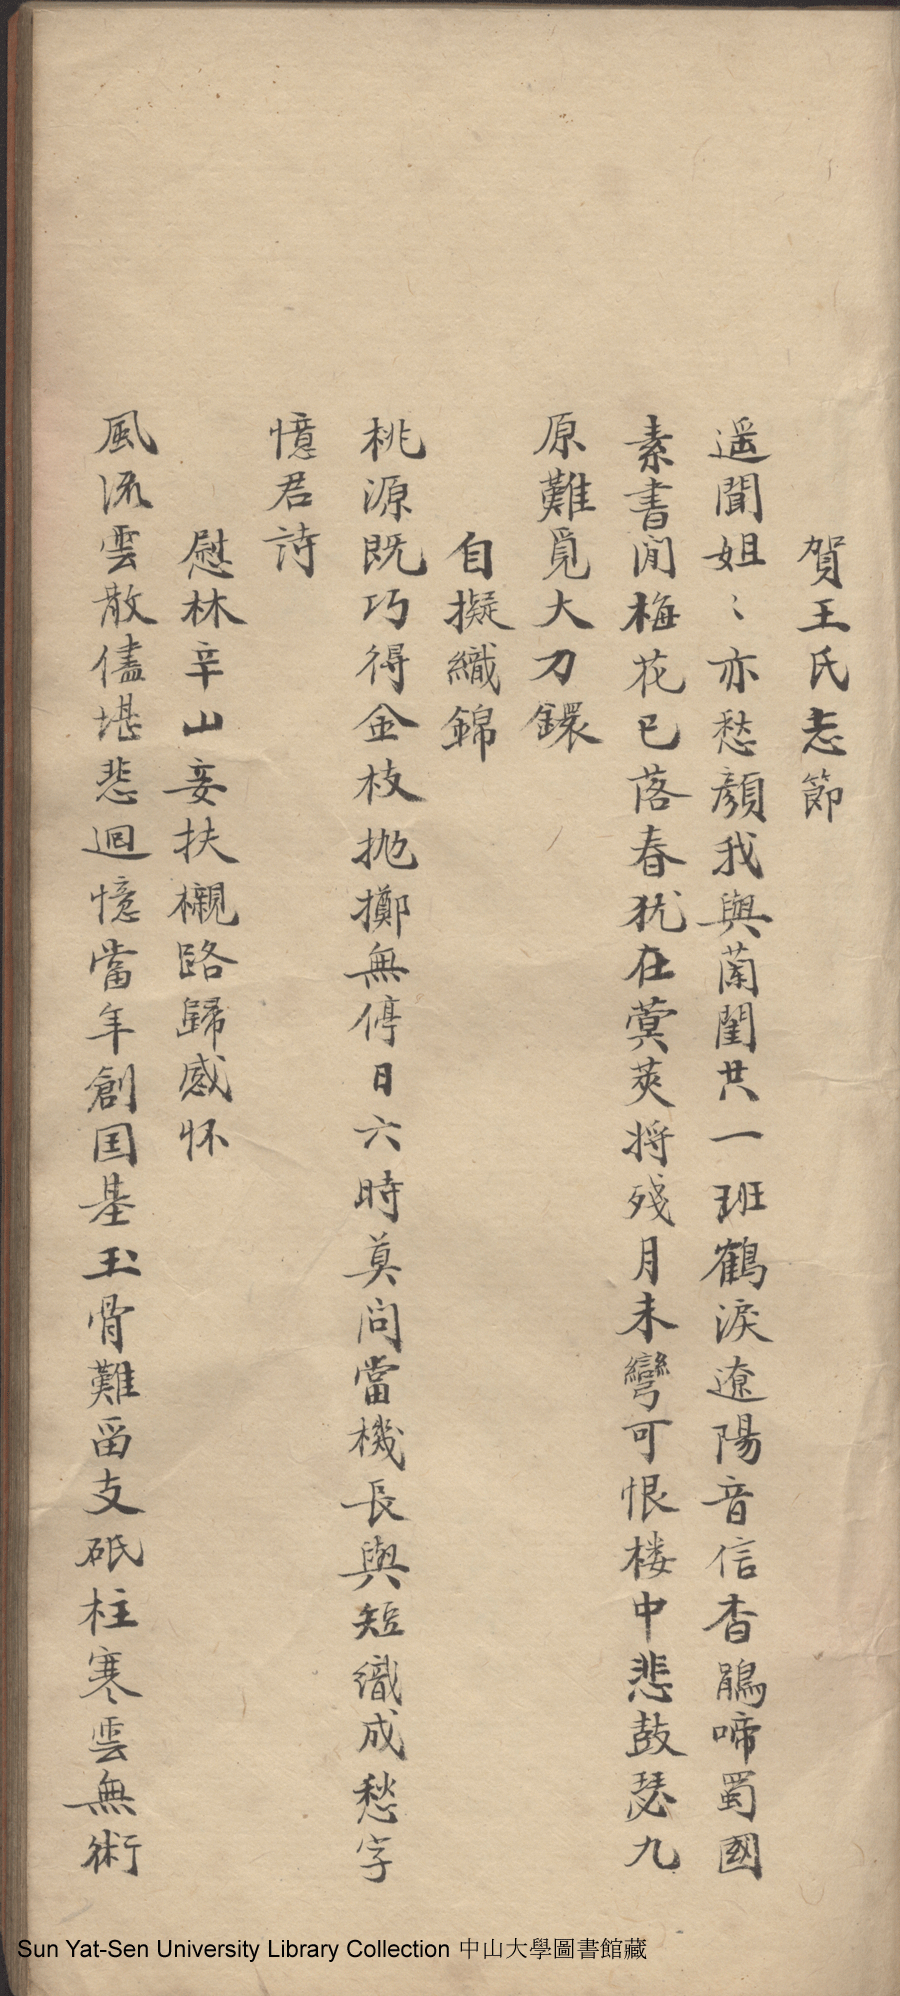 賀王氏志節
遥聞姐〻亦愁顏我與蘭閨共一班鶴淚遼陽音信杳鵑啼蜀國
素書閒梅花已落春犹在蓂莢将殘月未彎可恨楼中悲鼓瑟九
原難覓大刀鐶
自擬織錦
桃源既巧得金枝抛擲無停日六時莫问當機長與短織成愁字
憶君詩
慰林辛山妾扶櫬路歸感怀
風流雲散儘堪悲迴憶當年創国基玉骨難留支砥柱寒雲無術
Sun Yat-Sen University Library Collection 中山大學圖書館藏